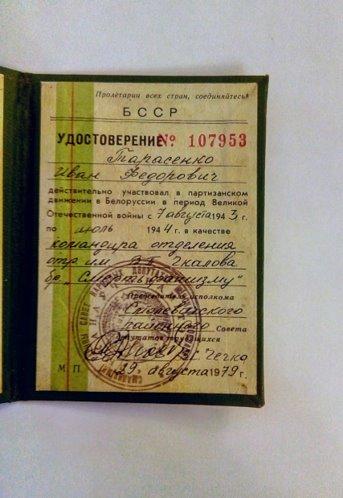 Пролетарии всех стран, соединяйтесь!
БССР
УДОСТОВЕРЕНИЕ № 107953
Тарасенко
Иван Федорович
действительно участвовал в партизанском
движении в Белоруссии в период Великой
Отечественной войны с 7 августа 1943 г.
по июль 1944 г. в качестве
командира отделения
отр. им. Чкалова
бр. „Смерть фашизму“
Председатель исполкома
Смолевичского
районного Совета
депутатов трудящихся
Чечко
М П 29 августа 1979 г.